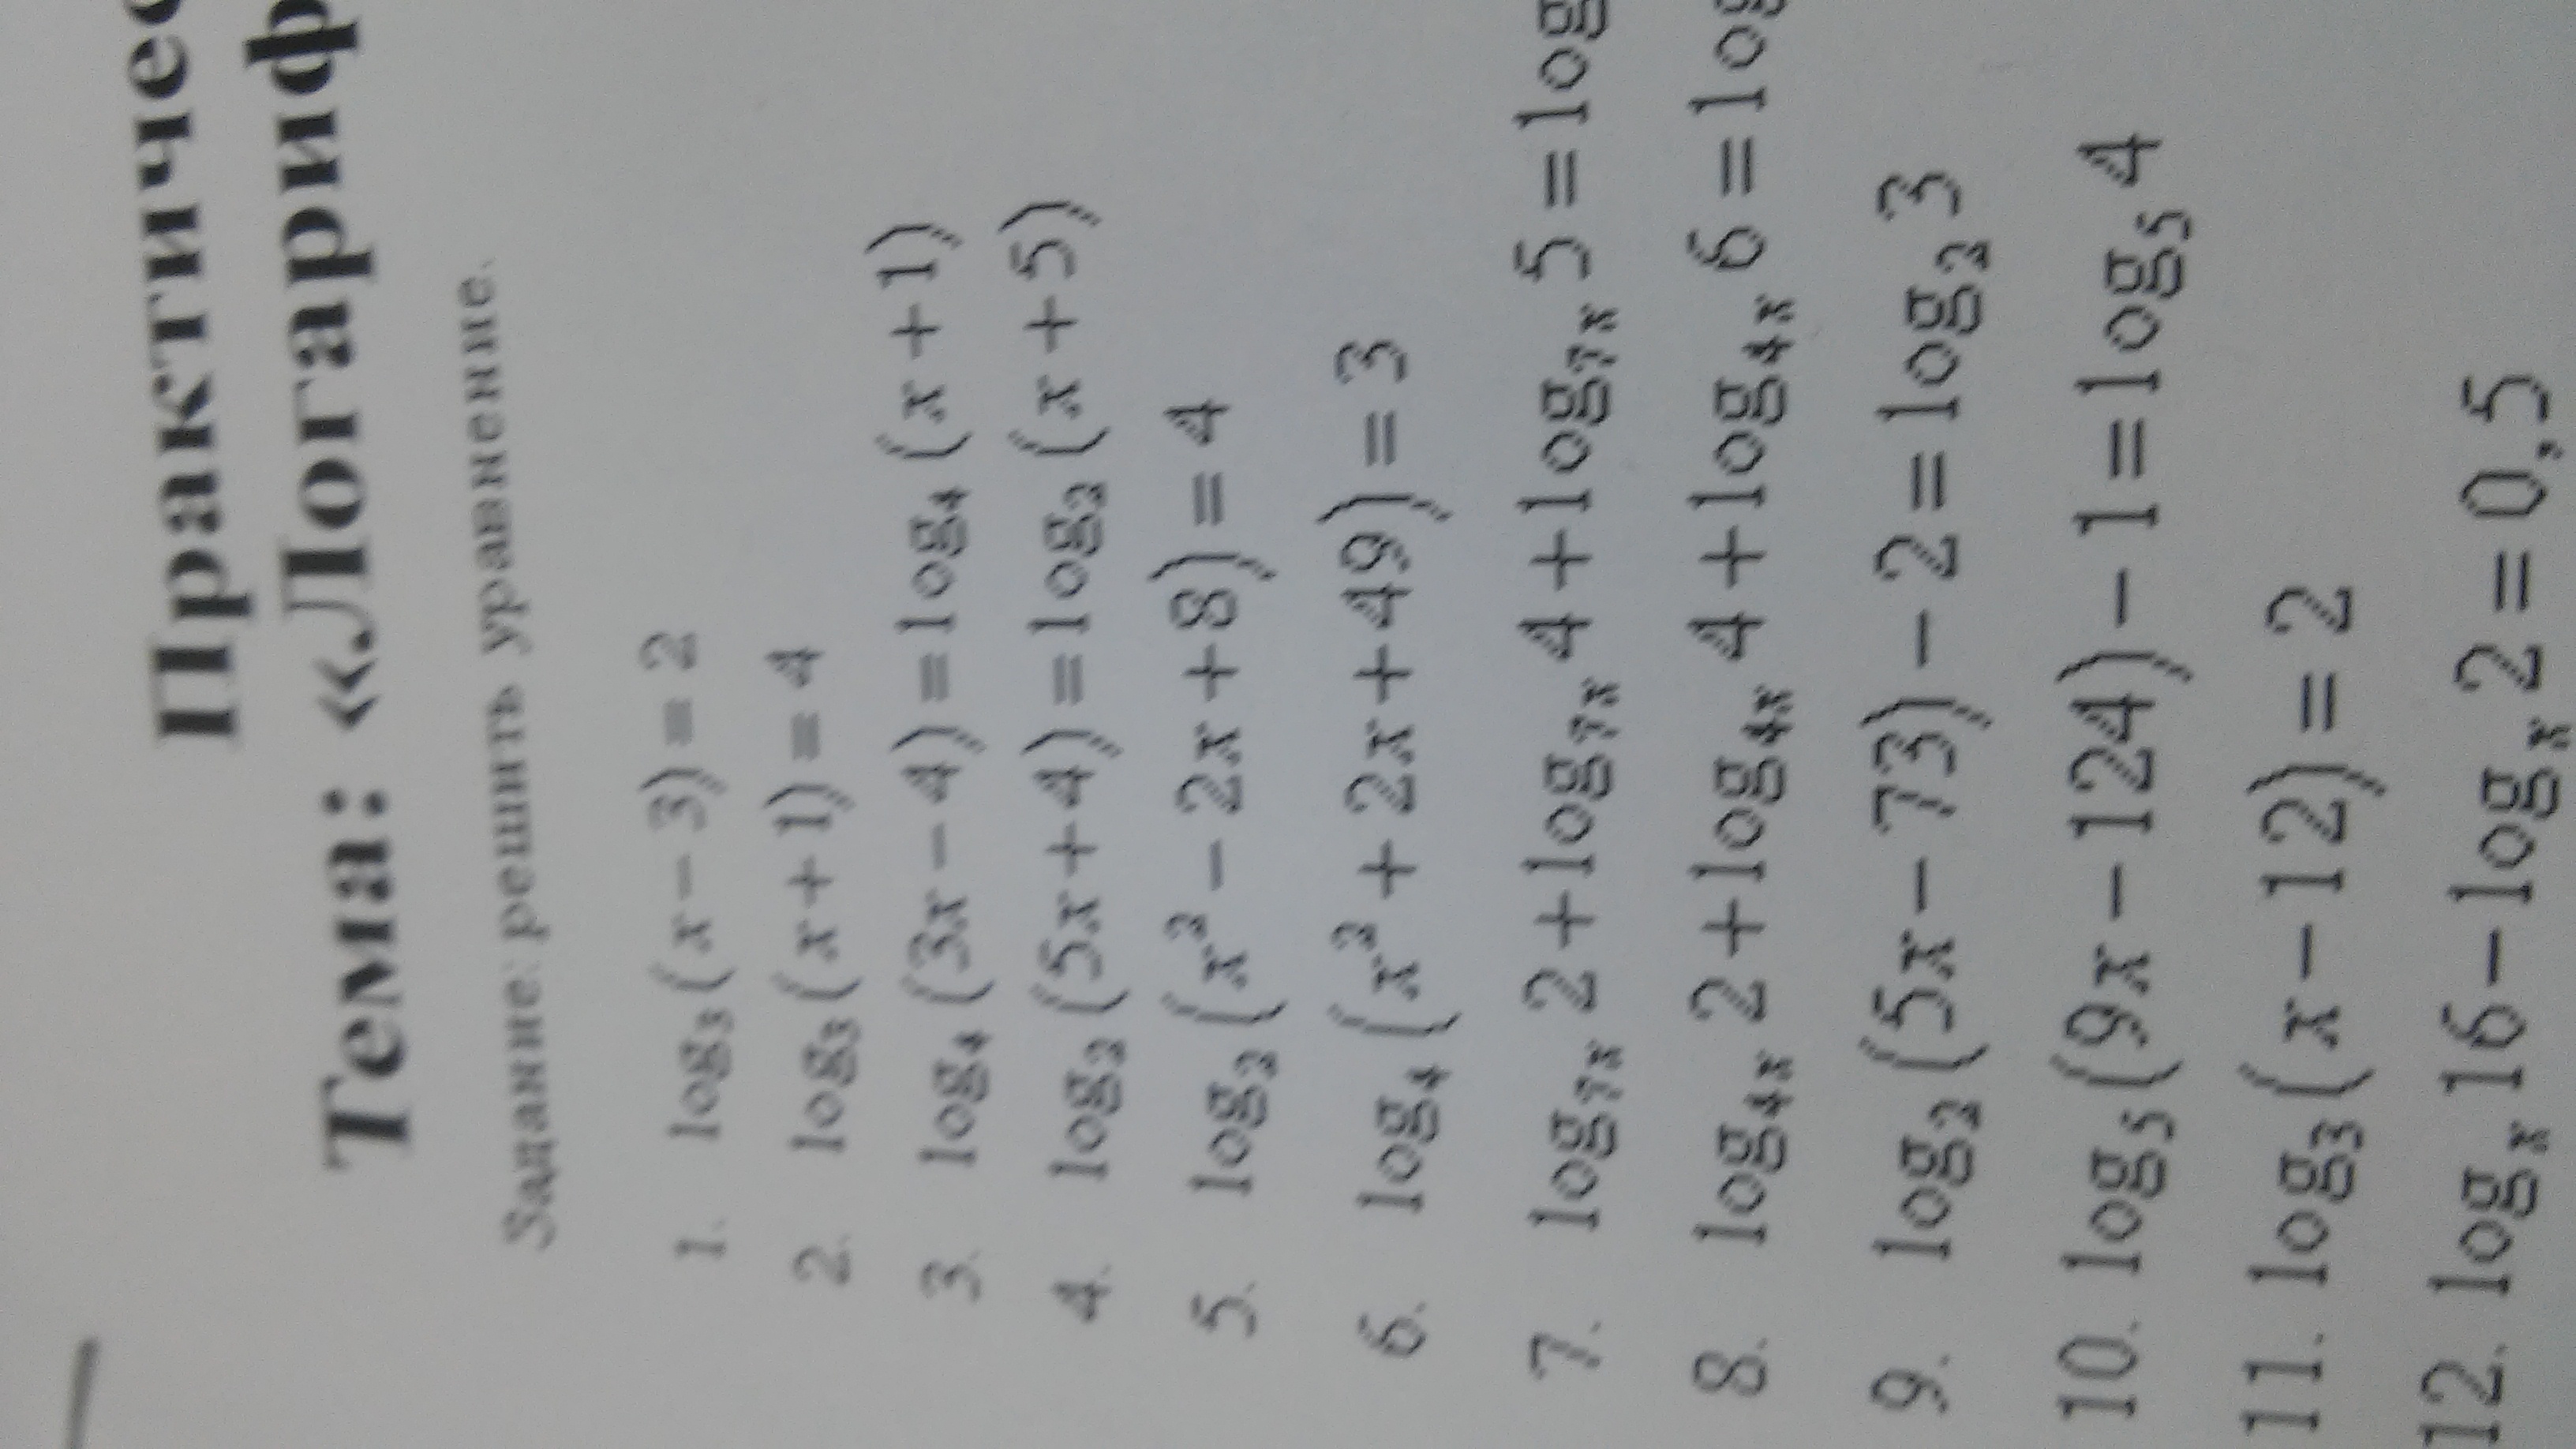 Практичес
Тема: «Логариф
Задание: решить уравнение.
1. log₃(x−3)=2
2. log₃(x+1)=4
3. log₄(3x−4)=log₄(x+1)
4. log₂(5x+4)=log₂(x+5)
5. log₂(x²−2x+8)=4
6. log₄(x²+2x+49)=3
7. log₇ₓ 2+log₇ₓ 4+log₇ₓ 5=log
8. log₄ₓ 2+log₄ₓ 4+log₄ₓ 6=log
9. log₂(5x−73)−2=log₂ 3
10. log₅(9x−124)−1=log₅ 4
11. log₃(x−12)=2
12. logₓ 16−logₓ 2=0,5